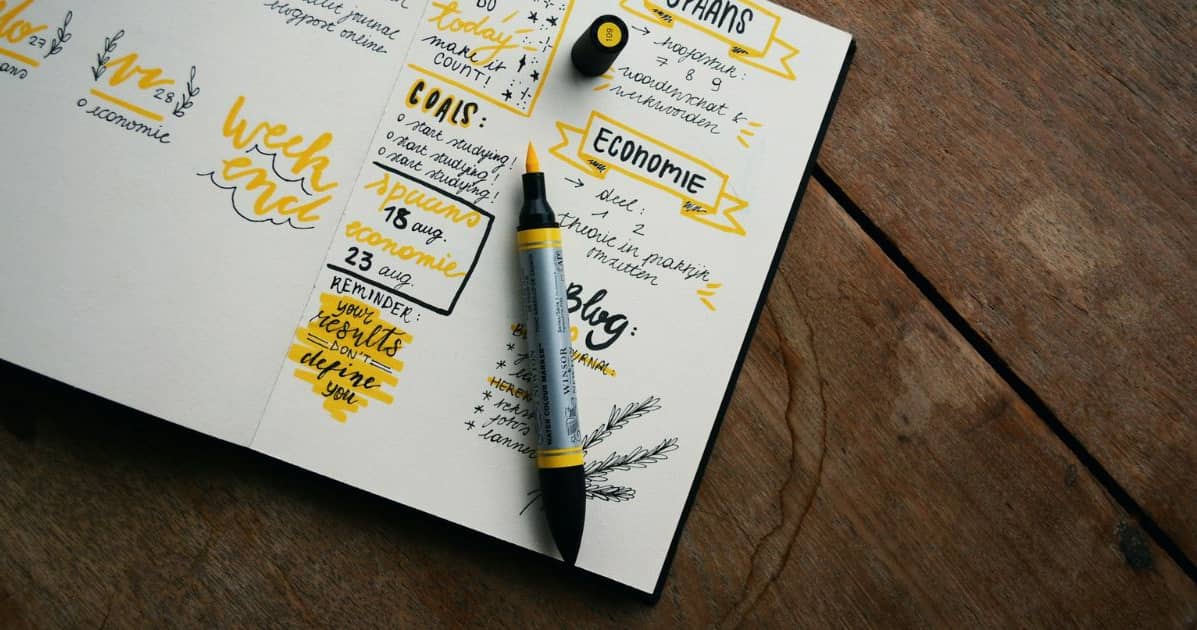 27
vr 28
o economie
week
end
journal
blogpost online
DO
today
make it
COUNT!
GOALS:
o start studying!
o start studying!
o start studying!
spaans
18 aug.
economie
23 aug.
REMINDER:
your
results
DON'T
define
you
SPAANS
→ hoofdstuk:
7 8 9
woordenschat &
werkwoorden
ECONOMIE
→ deel:
1 2
theorie in praktijk
omzetten
Blog:
JOURNAL:
* foto's
* banner
WATER COLOUR MARKER
WINSOR
109